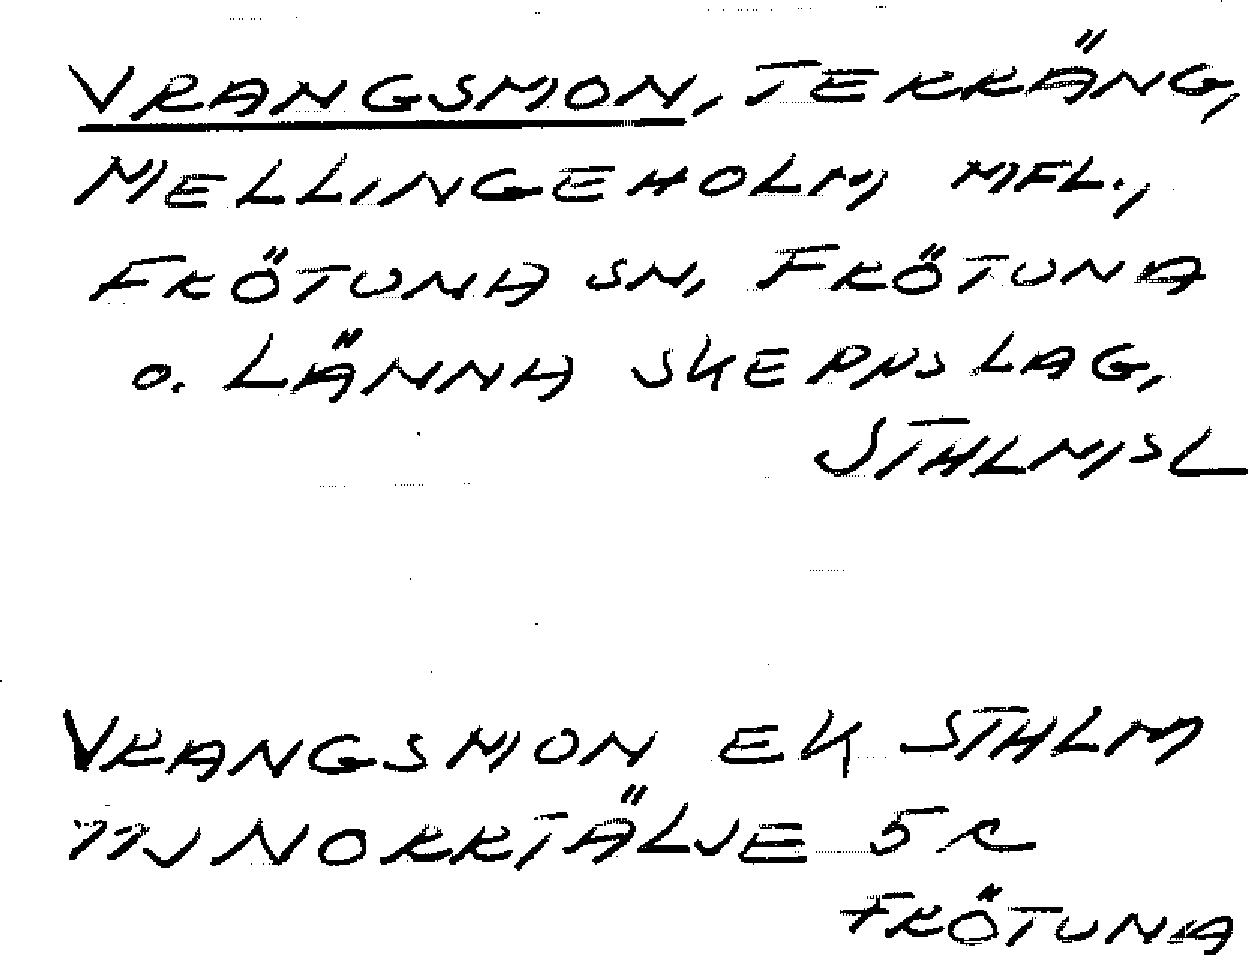 VRANGSMON, TERRÄNG,
MELLINGEHOLM, MFL.,
FRÖTUNA SN, FRÖTUNA
O. LÄNNA SKEPPSLAG,
STHLMSL
VRANGSMON EK STHLM
11J NORRTÄLJE 5 c
FRÖTUNA